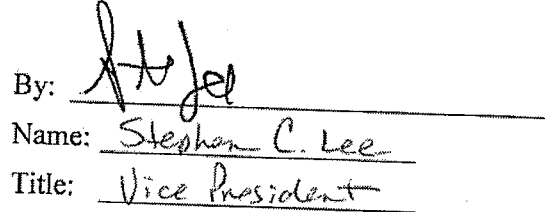 By:
Name: Stephen C. Lee
Title: Vice President